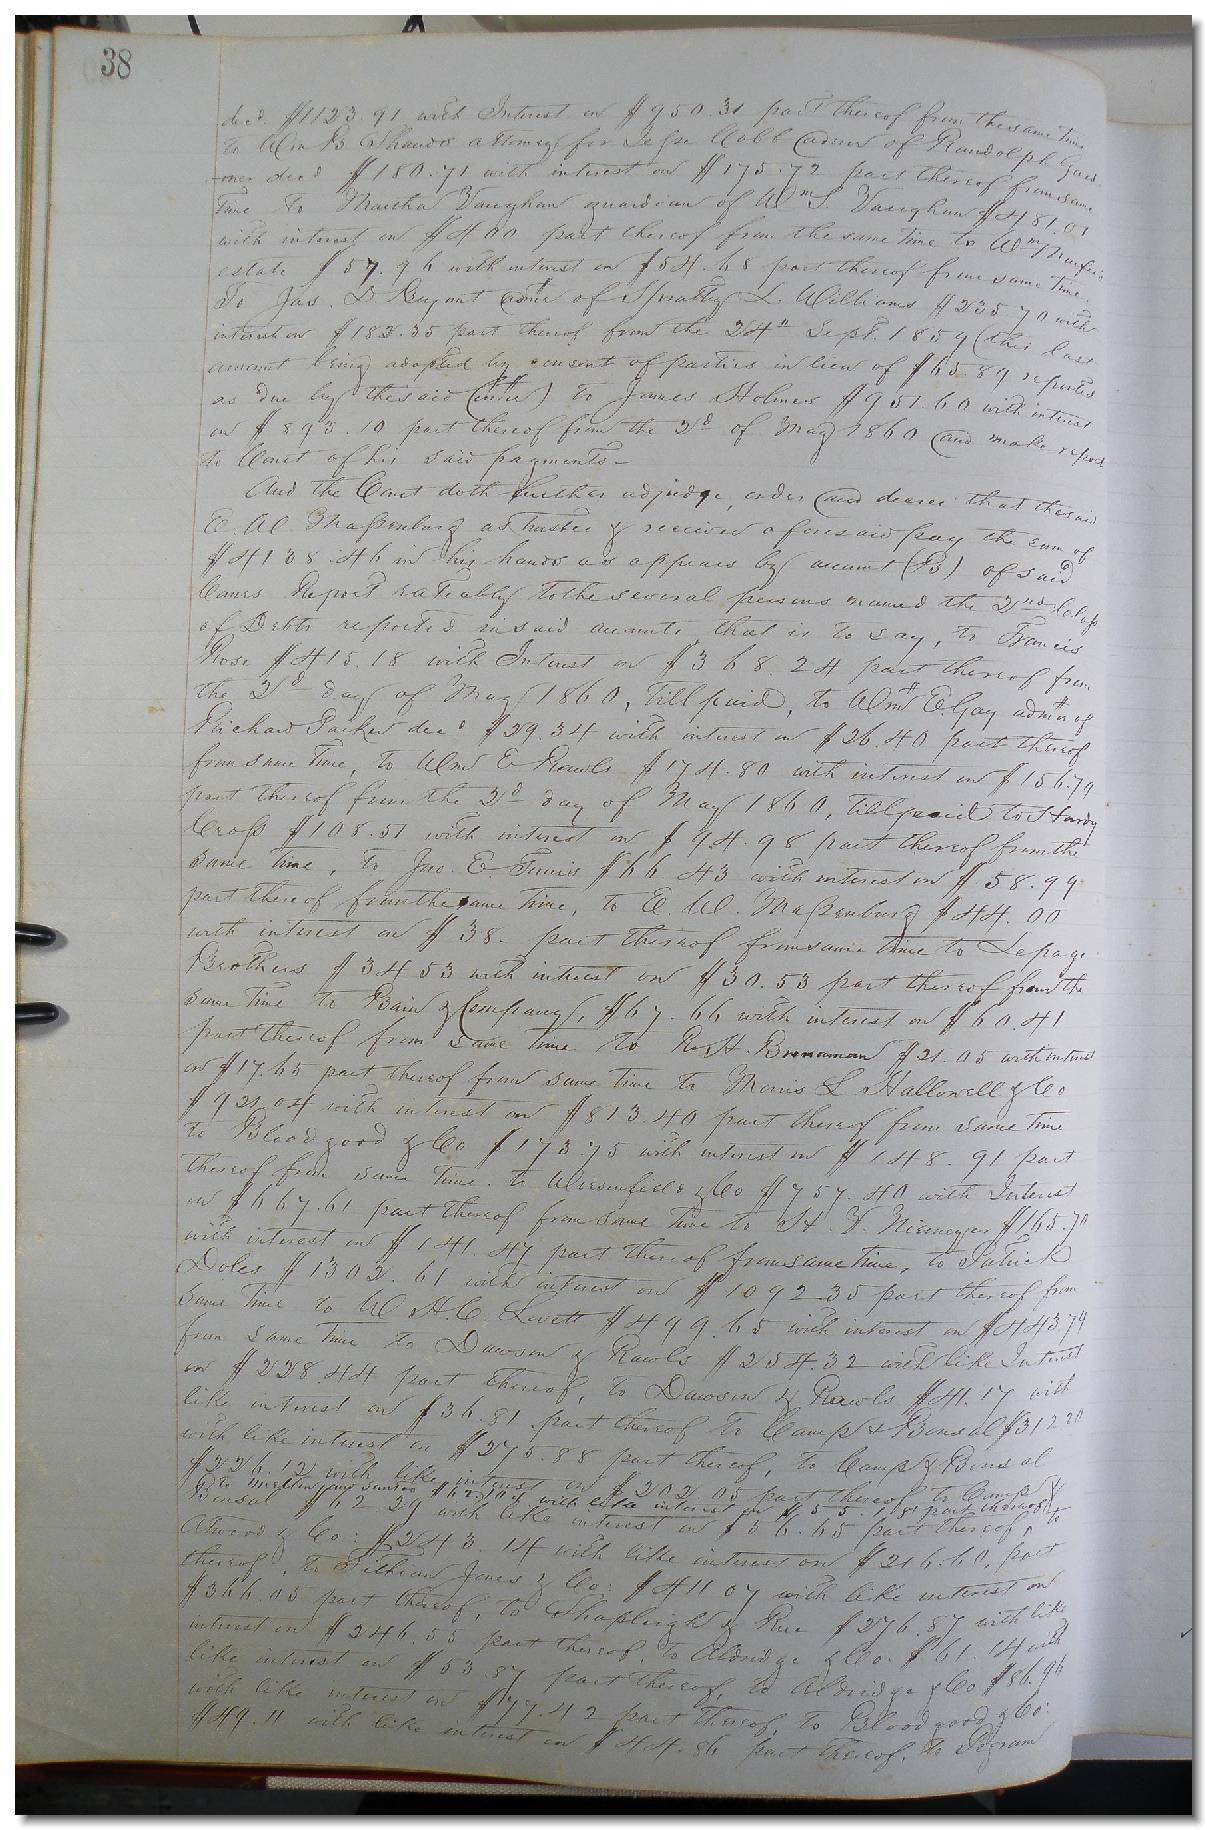 38
decd. $1123.91 with Interest on $950.31 part thereof from the same time
to Wm B Shands attorney for Cobb admr of Randolph
decd $180.71 with interest on $175.72 part thereof from same
time to Martha Vaughan guardian of Wm S. Vaughan $481.01
with interest on $400 part thereof from the same time to Wm
estate $57.96 with interest on $54.68 part thereof from same time.
To Jas. D Bryant admr of Spratley L. Williams $235.70 with
interest on $182.35 part thereof from the 24th Sept. 1859 (this last
amount being adopted by consent of parties in lieu of $65.89 reported
as due by the said ) to James Holmes $951.60 with interest
on $893.10 part thereof from the 2d of May 1860 and make report
to Court of his said payments -
And the Court doth further adjudge, order and decree that the said
E. W. Maßenburg as Trustee & receiver aforesaid pay the sum of
$4138.46 in his hands as appears by account (B) of said
Comrs Report rateably to the several persons named the 2nd Class
of Debts reported in said accounts, that is to say, to Francis
$415.18 with Interest on $368.24 part thereof from
the 2d day of May 1860, till paid, to Wm E. Gay admr of
Richard Parker decd $29.34 with interest on $26.40 part thereof
from same time, to Wm E Rawls $174.80 with interest on $156.79
part thereof from the 2d day of May 1860, till paid to Hardy
Croß $108.51 with interest on $94.98 part thereof from the
same time, to Jno. E $66 43 with interest on $58.99
part thereof from the same time, to E. W. Maßenburg $44.00
with interest on $38. part thereof from same time to Lepage
Brothers $34 53 with interest on $30.53 part thereof from the
same time to Bain & Company, $67.66 with interest on $60.41
part thereof from same time to R. H. Brenaman $21.05 with interest
on $17.65 part thereof from same time to Morris L Hallowell & Co
$921.04 with interest on $813.40 part thereof from same time
to Bloodgood & Co $173.75 with interest on $148.91 part
thereof from same time. to & Co $757.40 with Interest
on $667.61 part thereof from same time to H. V. Niemeyer $165.70
with interest on $141.47 part thereof from same time, to Patrick
Doles $1302.61 with interest on $1092.35 part thereof from
same time to W. H. C. Lovett $499.65 with interest on $443 79
from same time to Dawson & Rawls $254.32 with like Interest
on $228.44 part thereof, to Dawson & Rawls $41.17 with
like interest on $36.81 part thereof to Camp & Bonsal $312 20
with like interest on $275.88 part thereof, to Camp & Bonsal
$226.12 with like interest on $202.05 part thereof to Camp &
with like interest on $55. part thereof
Bonsal $62 29 with like interest on $56.65 part thereof, to
Atwood & Co: $243.14 with like interest on $216.60, part
thereof, to Jones & Co: $411 07 with like interest on
$366.05 part thereof, to Shapleigh & Rue $276.87 with like
interest on $246.55 part thereof, to Aldridge & Co. $61.14 with
like interest on $53.87 part thereof, to Aldridge & Co $86.96
with like interest on $77.42 part thereof, to Bloodgood & Co:
$49.11 with like interest on $44.86 part thereof, to Pegram